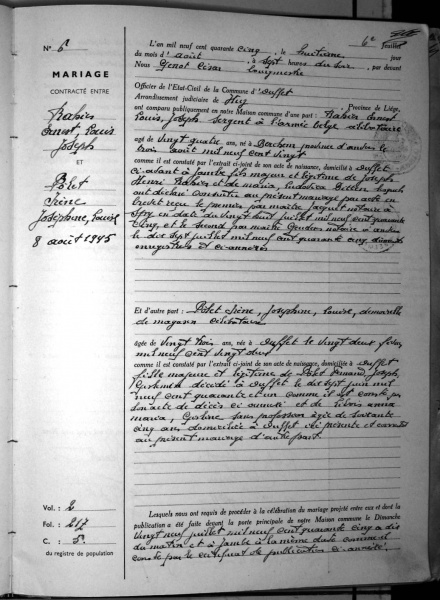 6e feuillet
N° 6
MARIAGE
CONTRACTÉ ENTRE
Ernest, Louis
Joseph
ET
Pôlet
Irène
Joséphine, Louise
8 août 1945
L'an mil neuf cent quarante cinq, le huitième jour
du mois d'août à sept heures du soir, par devant
Nous Genot César bourgmestre
Officier de l'Etat-Civil de la Commune d'Ouffet
Arrondissement judiciaire de Huy, Province de Liège,
ont comparu publiquement en notre Maison commune d'une part : Ernest
Louis, Joseph sergent à l'armée belge célibataire
agé de vingt quatre ans, né à province d'Anvers le
trois août mil neuf cent vingt
comme il est constaté par l'extrait ci-joint de son acte de naissance, domicilié à Ouffet
ci-avant à Jambe fils majeur et légitime de Joseph
Henri et de Maria, Ludovica lesquels
ont déclaré consentir au présent mariage par acte en
brevet reçu le premier par maître Jacquet notaire à
en date du vingt huit juillet mil neuf cent quarante
cinq, et le second par maître notaire à Anvers
le dix sept juillet mil neuf cent quarante cinq dûment
enregistrés et ci-annexés
Et d'autre part : Pôlet Irène, Joséphine, Louise, demoiselle
de magasin célibataire
agée de vingt trois ans, née à Ouffet le vingt deux
mil neuf cent vingt deux
comme il est constaté par l'extrait ci-joint de son acte de naissance, domiciliée à Ouffet
fille majeure et légitime de Pôlet Armand, Joseph,
décédé à Ouffet le dix sept juin mil
neuf cent quarante et un comme il est constaté par
son acte de décès ci annexé et de Anna
Maria, sans profession âgée de soixante
cinq ans domiciliée à Ouffet ici présente et consentant
au présent mariage d'autre part.
Lesquels nous ont requis de procéder à la célébration du mariage projeté entre eux et dont la
publication a été faite devant la porte principale de notre Maison commune le Dimanche
vingt neuf juillet mil neuf cent quarante cinq à dix
du matin et à Jambe à la même date comme il
conste par le certificat de publication ci-annexé
Vol. : 2
Fol. : 217
C. : 5
du registre de population